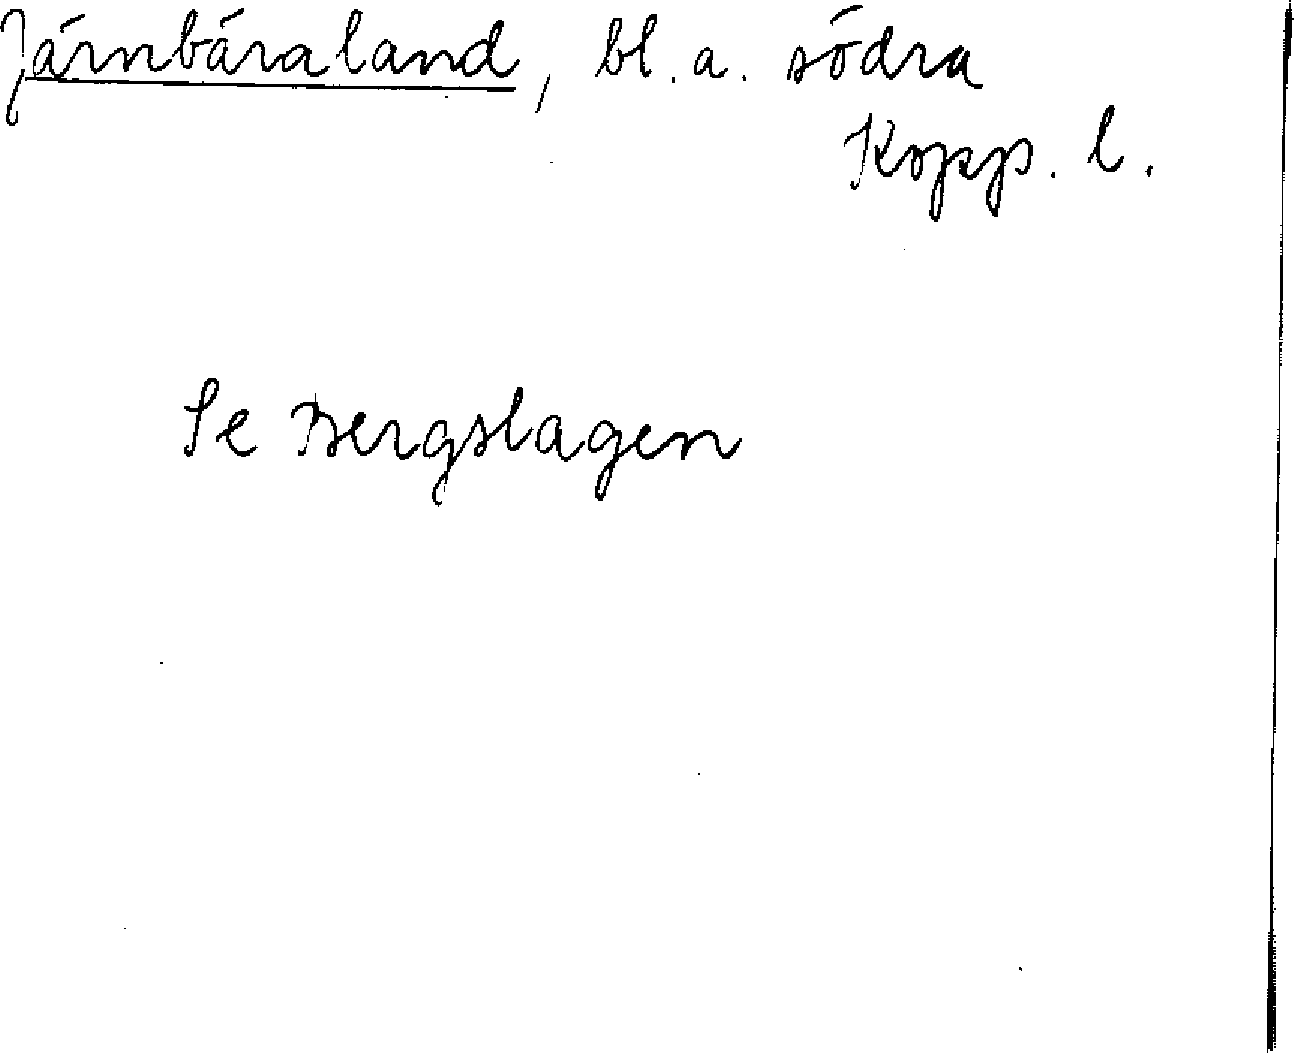 Järnbäraland, bl. a. södra
Kopp. l.
Se Bergslagen